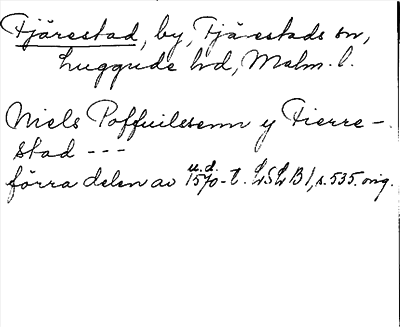 Fjärestad, by, Fjärestads sn,
Luggude hd, Malm. l.
Niels Poffuilssenn y Fierre-
stad ---
förra delen av u.d. 1570-t. LSLB 1, s. 535. orig.